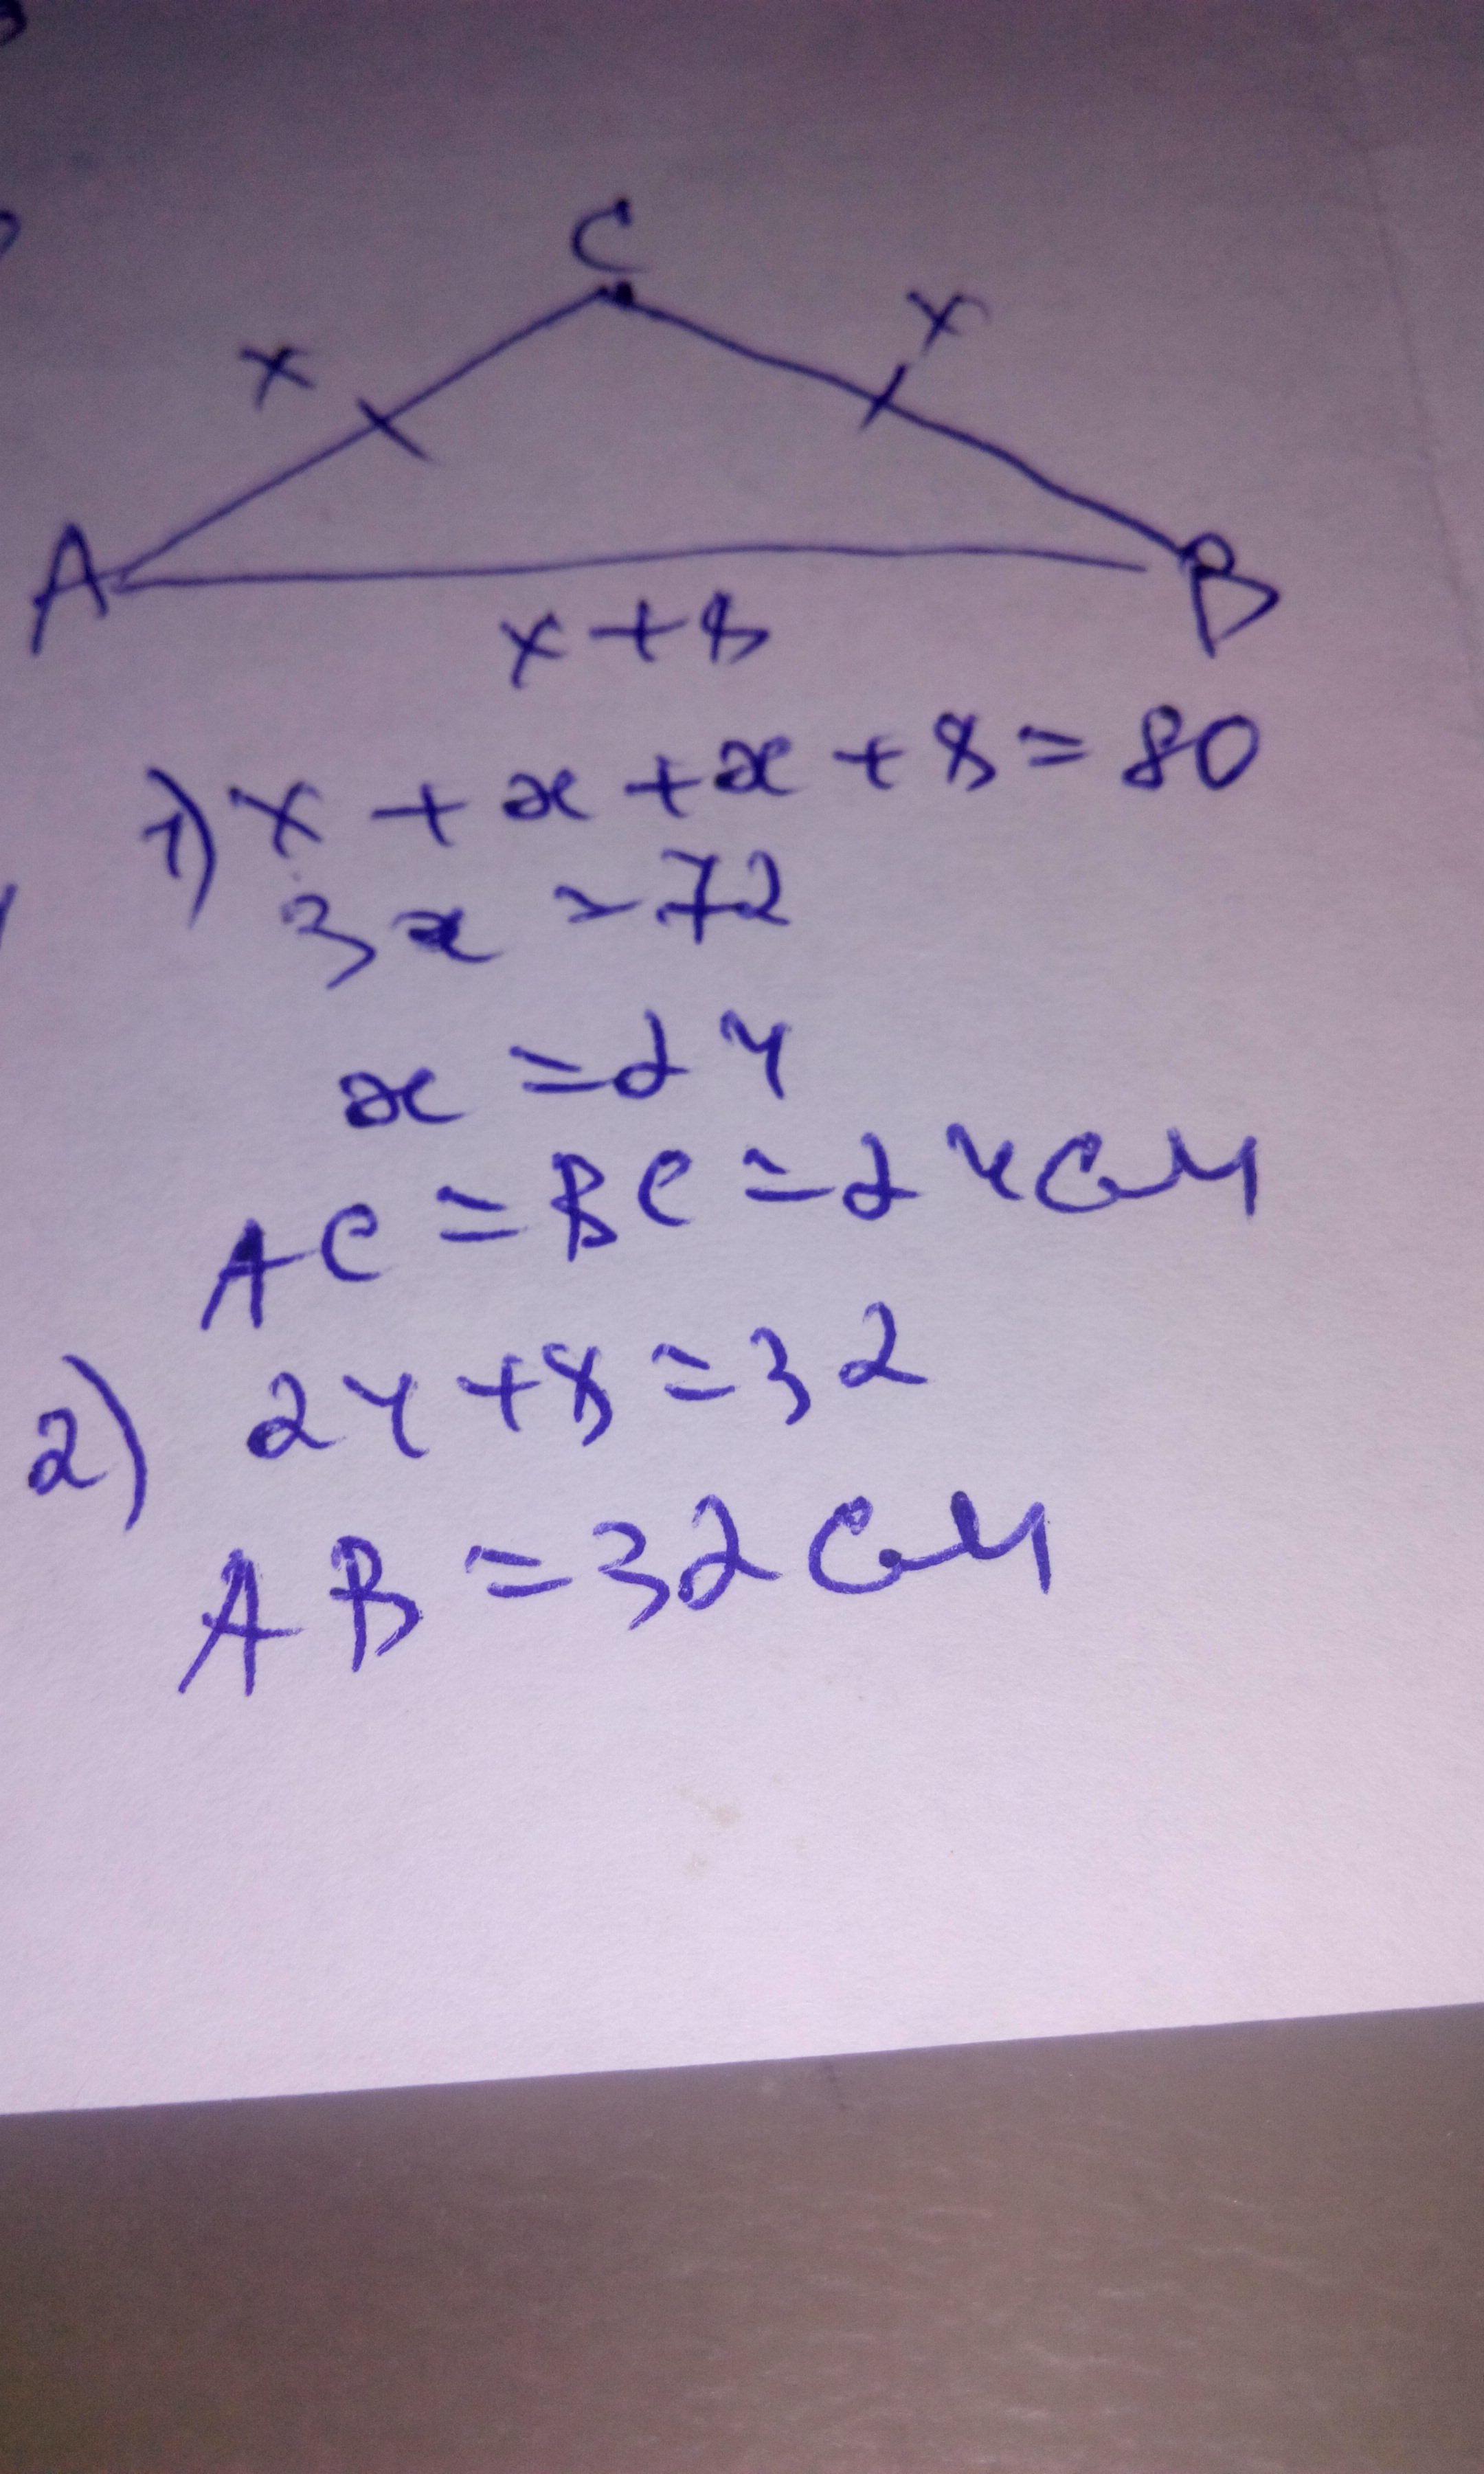 C
x x
A B
x+8
1) x + x + x + 8 = 80
3x = 72
x = 24
AC = BC = 24 см
2) 24 + 8 = 32
AB = 32 см